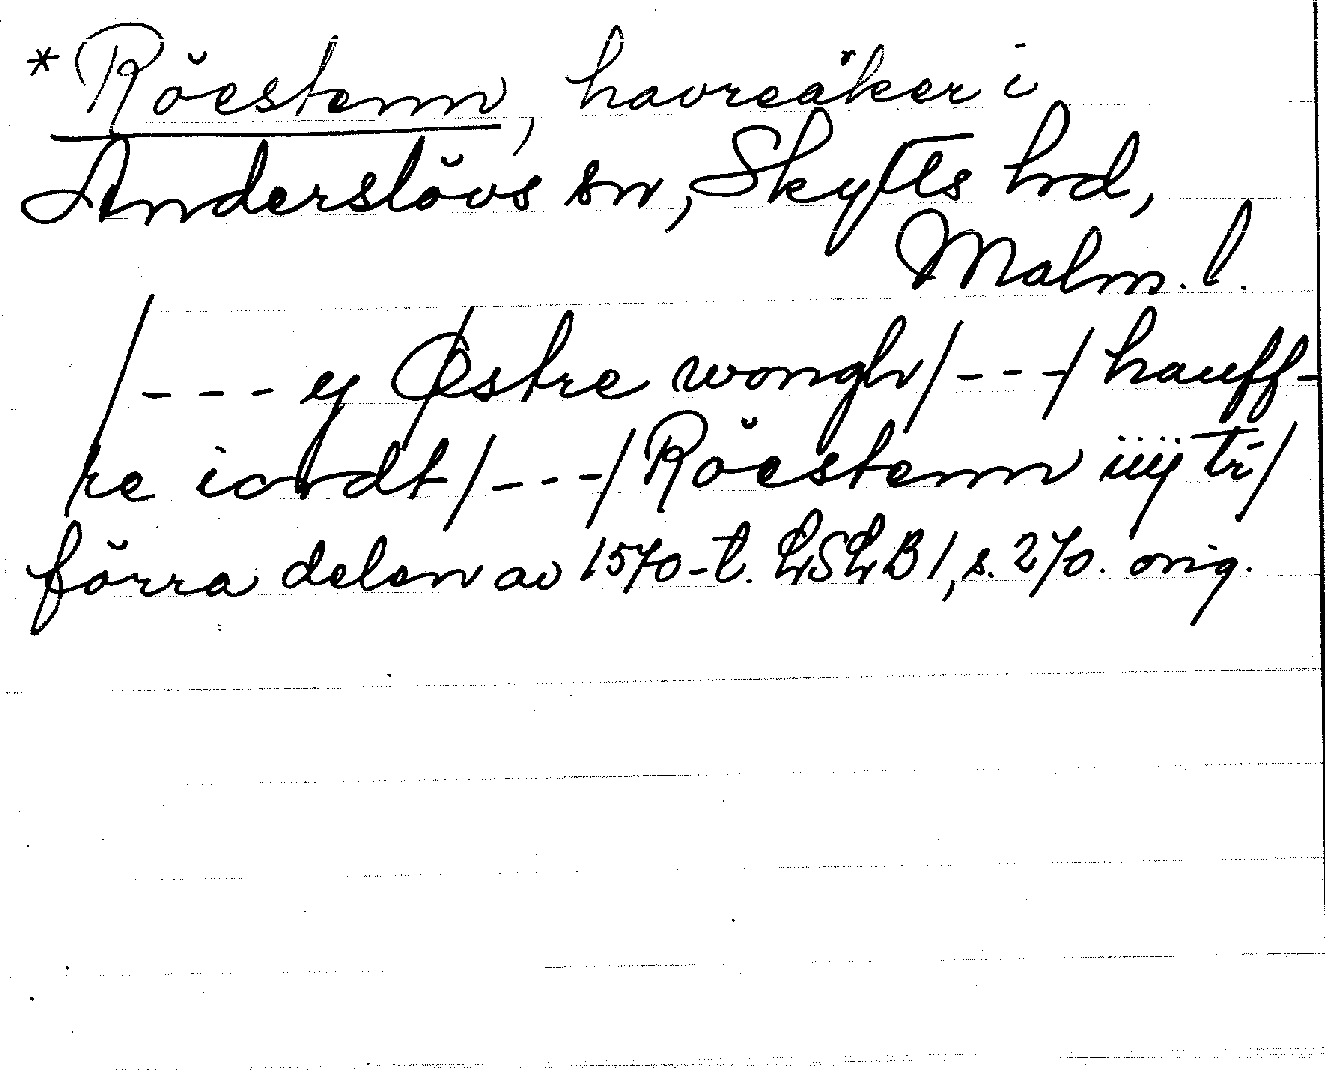 *Röestenn, havreåker i
Anderslövs sn, Skytts hd,
Malm. l.
/--- y Østre wongh/---/ hauff-
re iordt/---/ Röestenn iiij tr/
förra delen av 1570-t. LSLB 1, s. 270. orig.